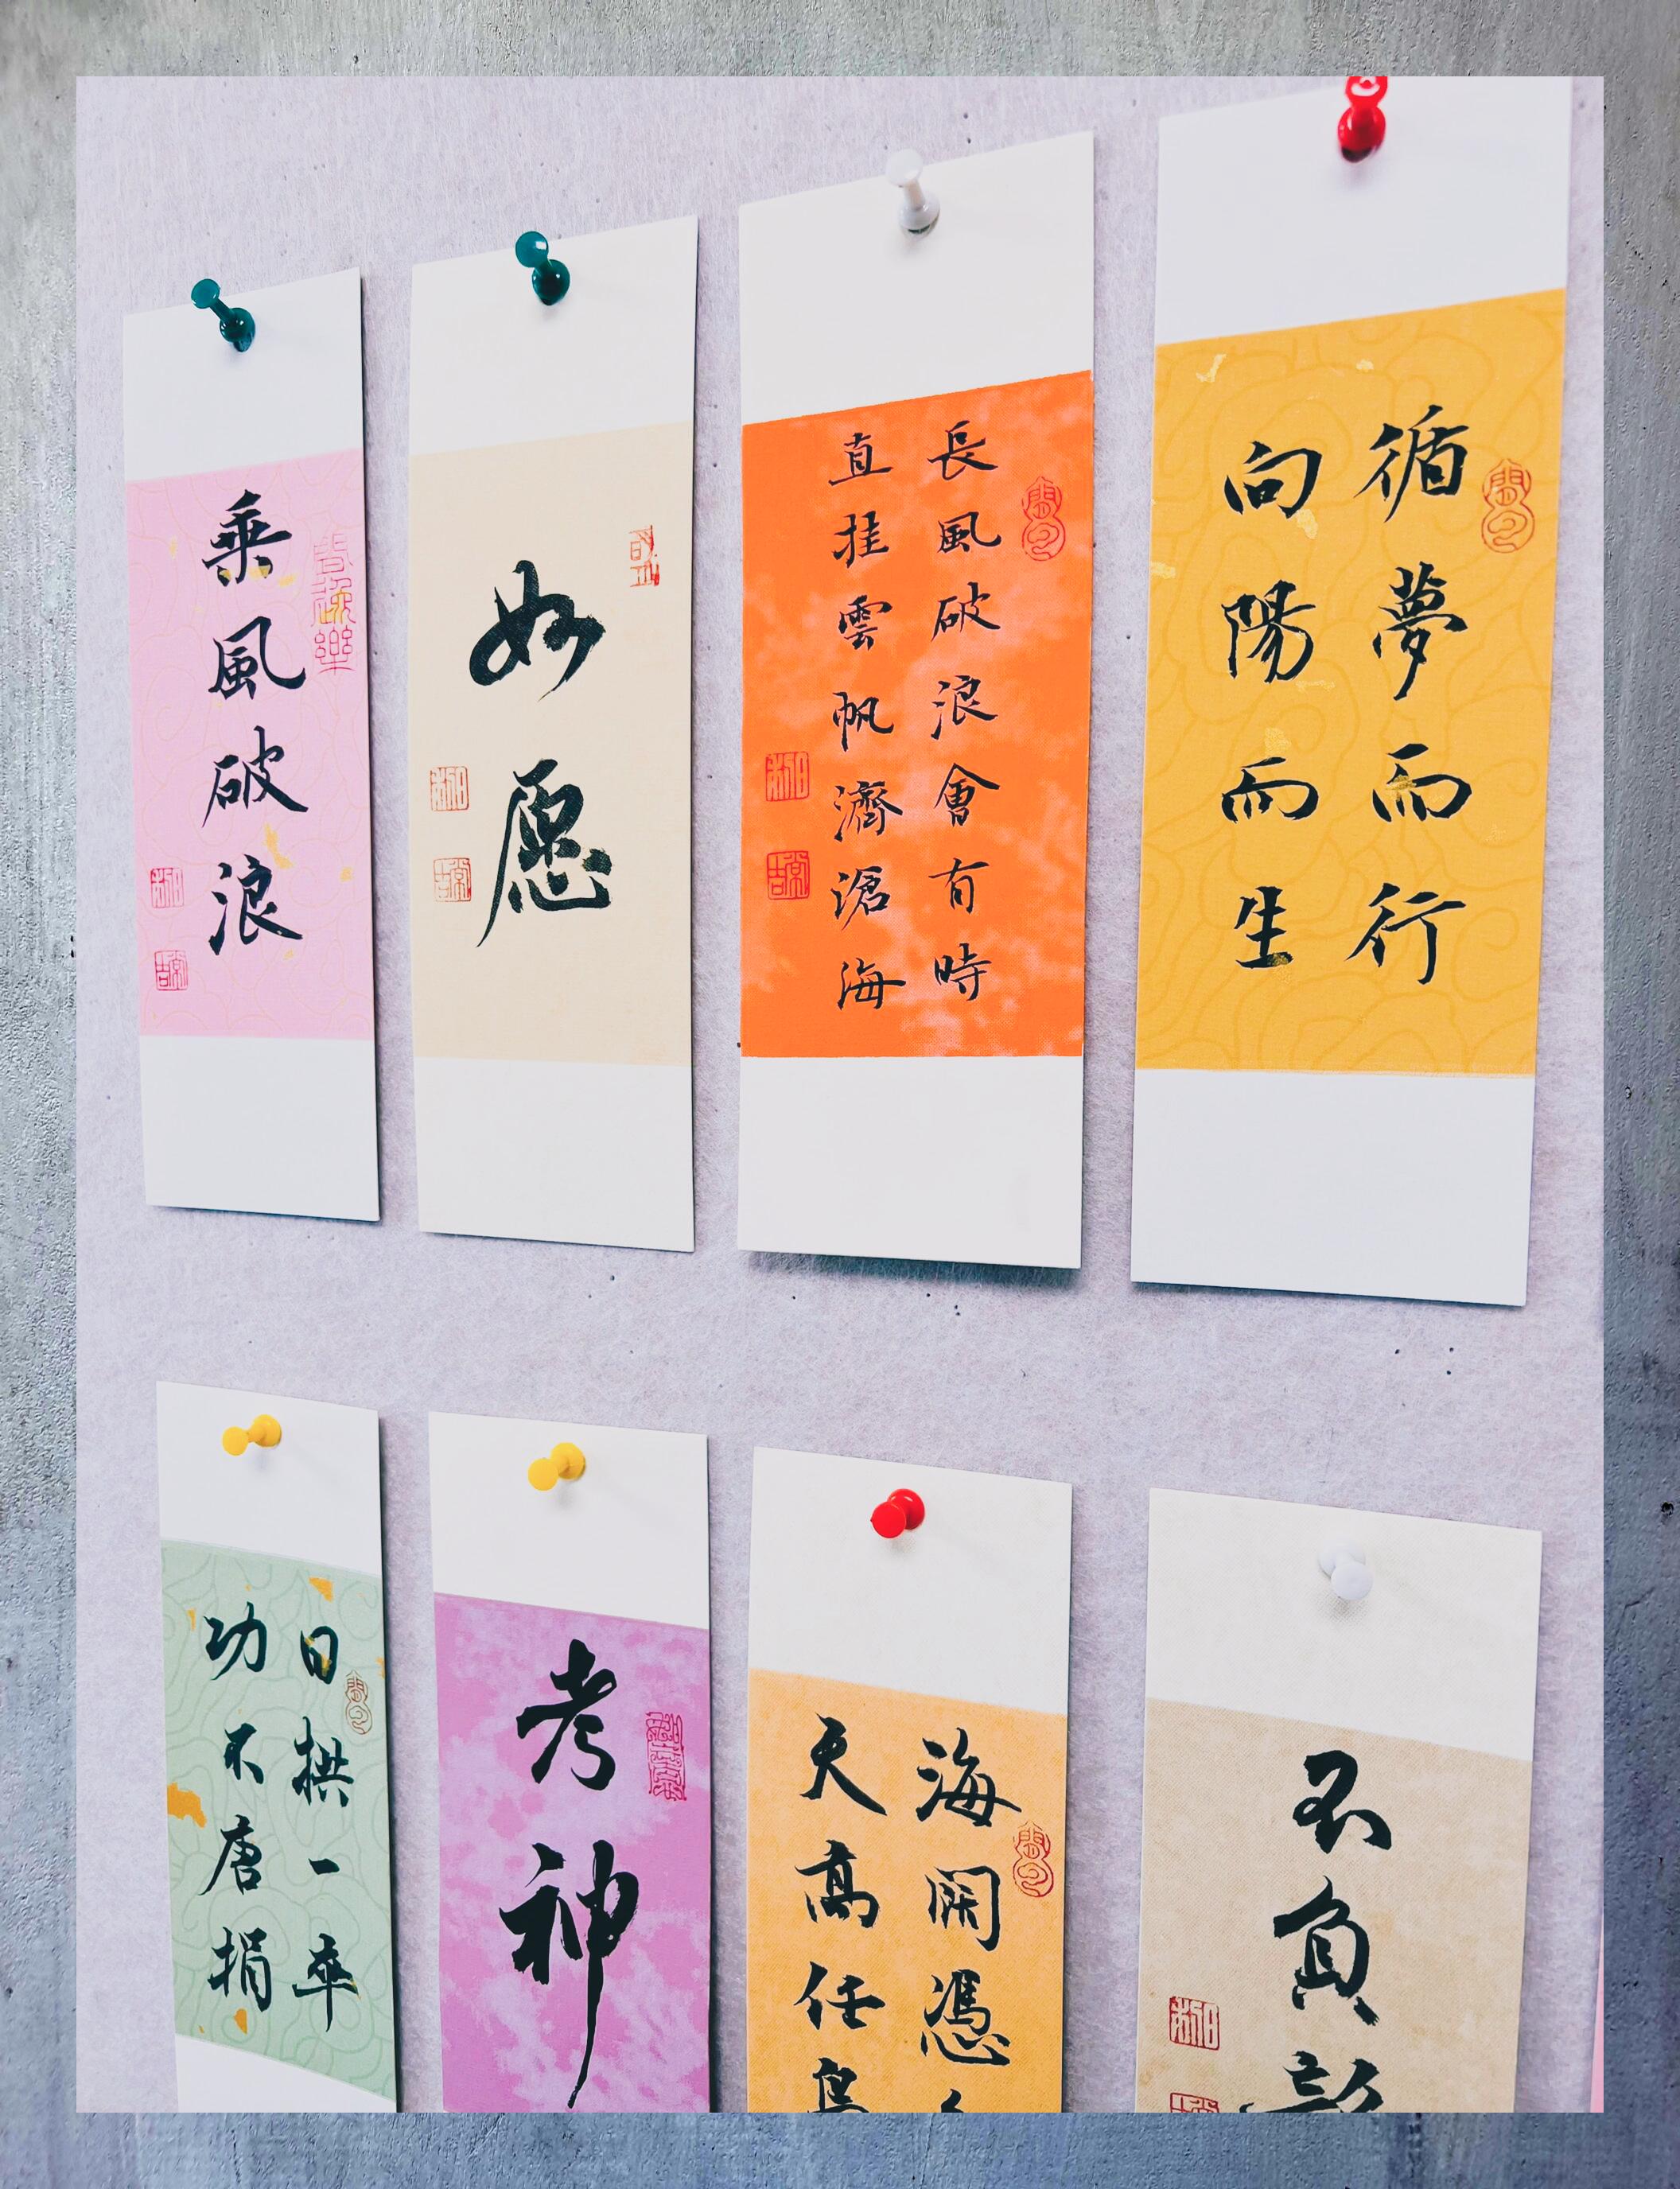 乘風破浪
如愿
長風破浪會有時
直挂雲帆濟滄海
循夢而行
向陽而生
日拱一卒
功不唐捐
考神
海闊憑
天高任鳥
不負